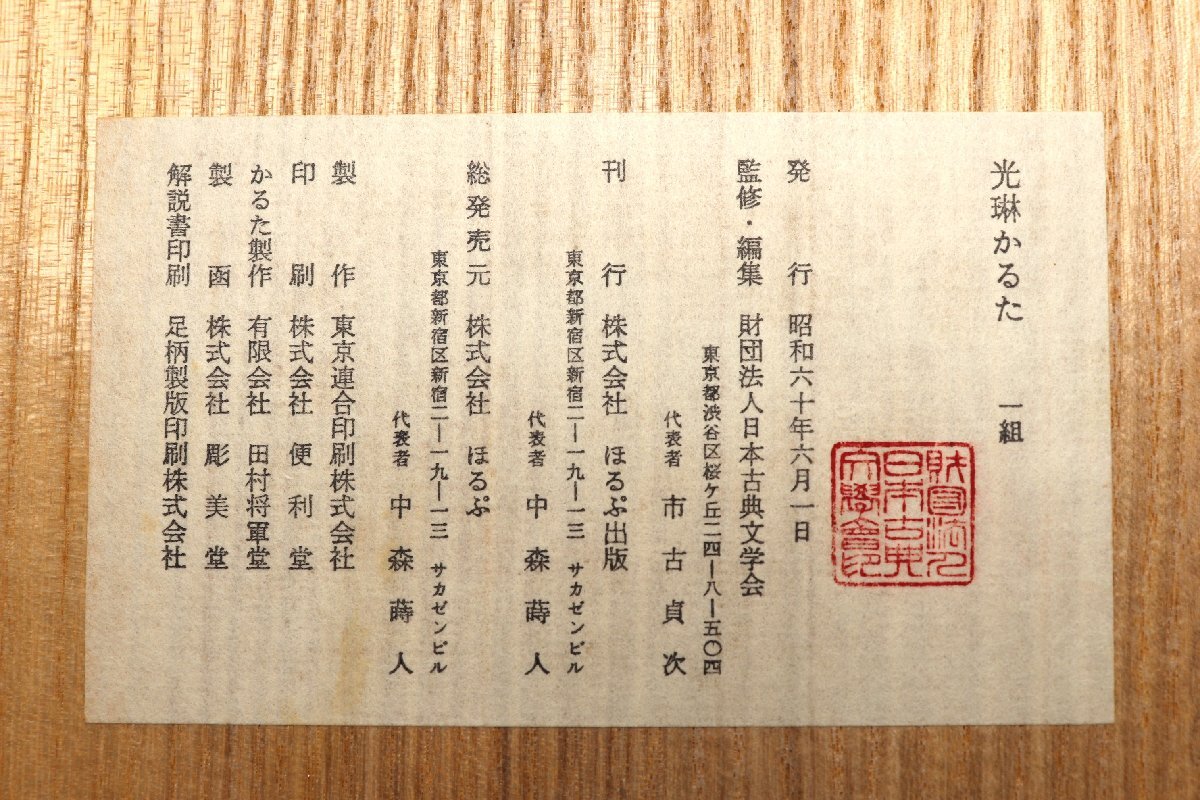 光琳かるた　一組
財団法人
日本古典
文學會印
発行　昭和六十年六月一日
監修・編集　財団法人日本古典文学会
東京都渋谷区桜ケ丘二四―八―五〇四
代表者　市古貞次
刊行　株式会社　ほるぷ出版
東京都新宿区新宿二―一九―一三　サカゼンビル
代表者　中森蒔人
総発売元　株式会社　ほるぷ
東京都新宿区新宿二―一九―一三　サカゼンビル
代表者　中森蒔人
製作　東京連合印刷株式会社
印刷　株式会社　便利堂
かるた製作　有限会社　田村将軍堂
製函　株式会社　彫美堂
解説書印刷　足柄製版印刷株式会社